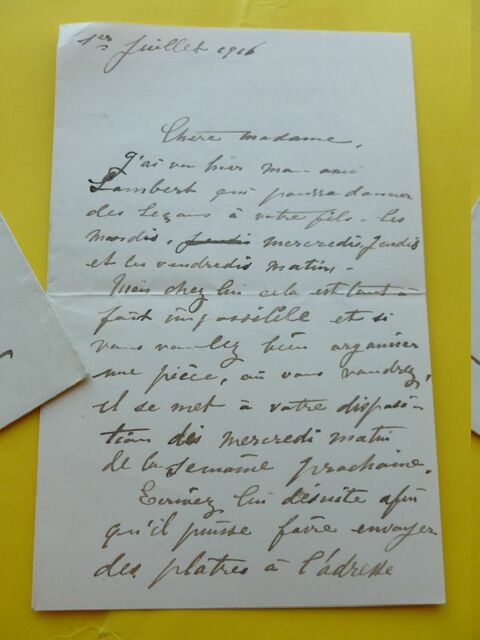 1er Juillet 1916
Chère Madame,
J'ai vu hier mon ami
Lambert qui pourra donner
des leçons à votre fils. les
mardis, jeudis mercredis, jeudis
et les vendredis matins.
Mais chez lui cela est tout à
fait impossible et si
vous voulez bien organiser
une pièce, où vous voudrez,
il se met à votre disposi-
tion dès mercredi matin
de la semaine prochaine.
Ecrivez lui désuite afin
qu'il puisse faire envoyer
des platres à l'adresse